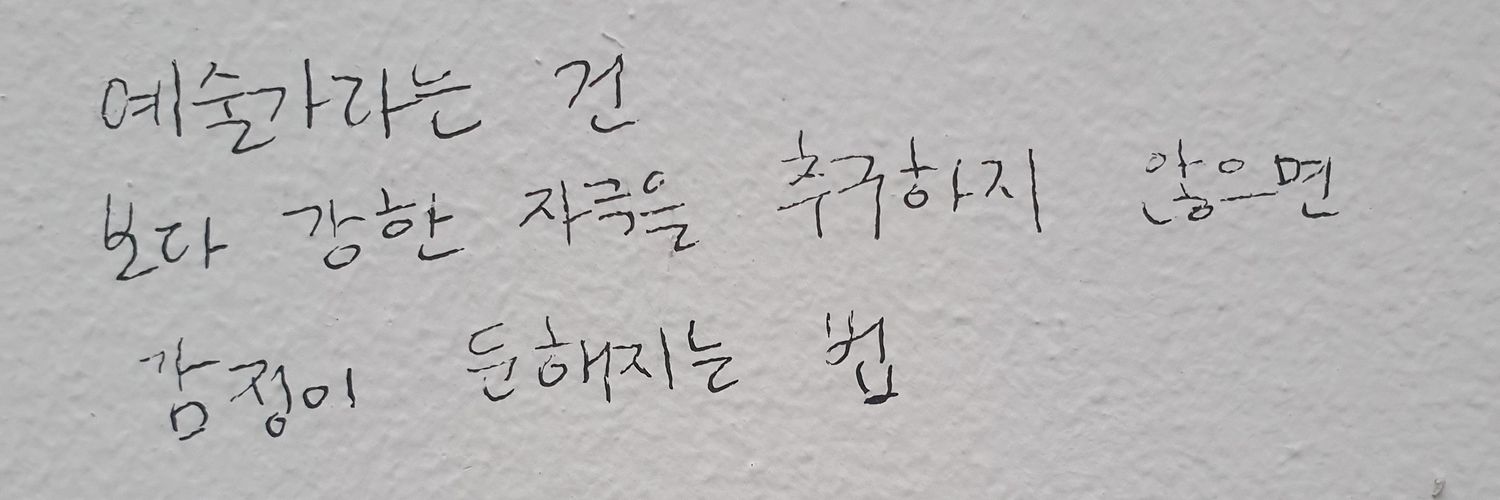 예술가라는 건
보다 강한 자극을 추구하지 않으면
감정이 둔해지는 법